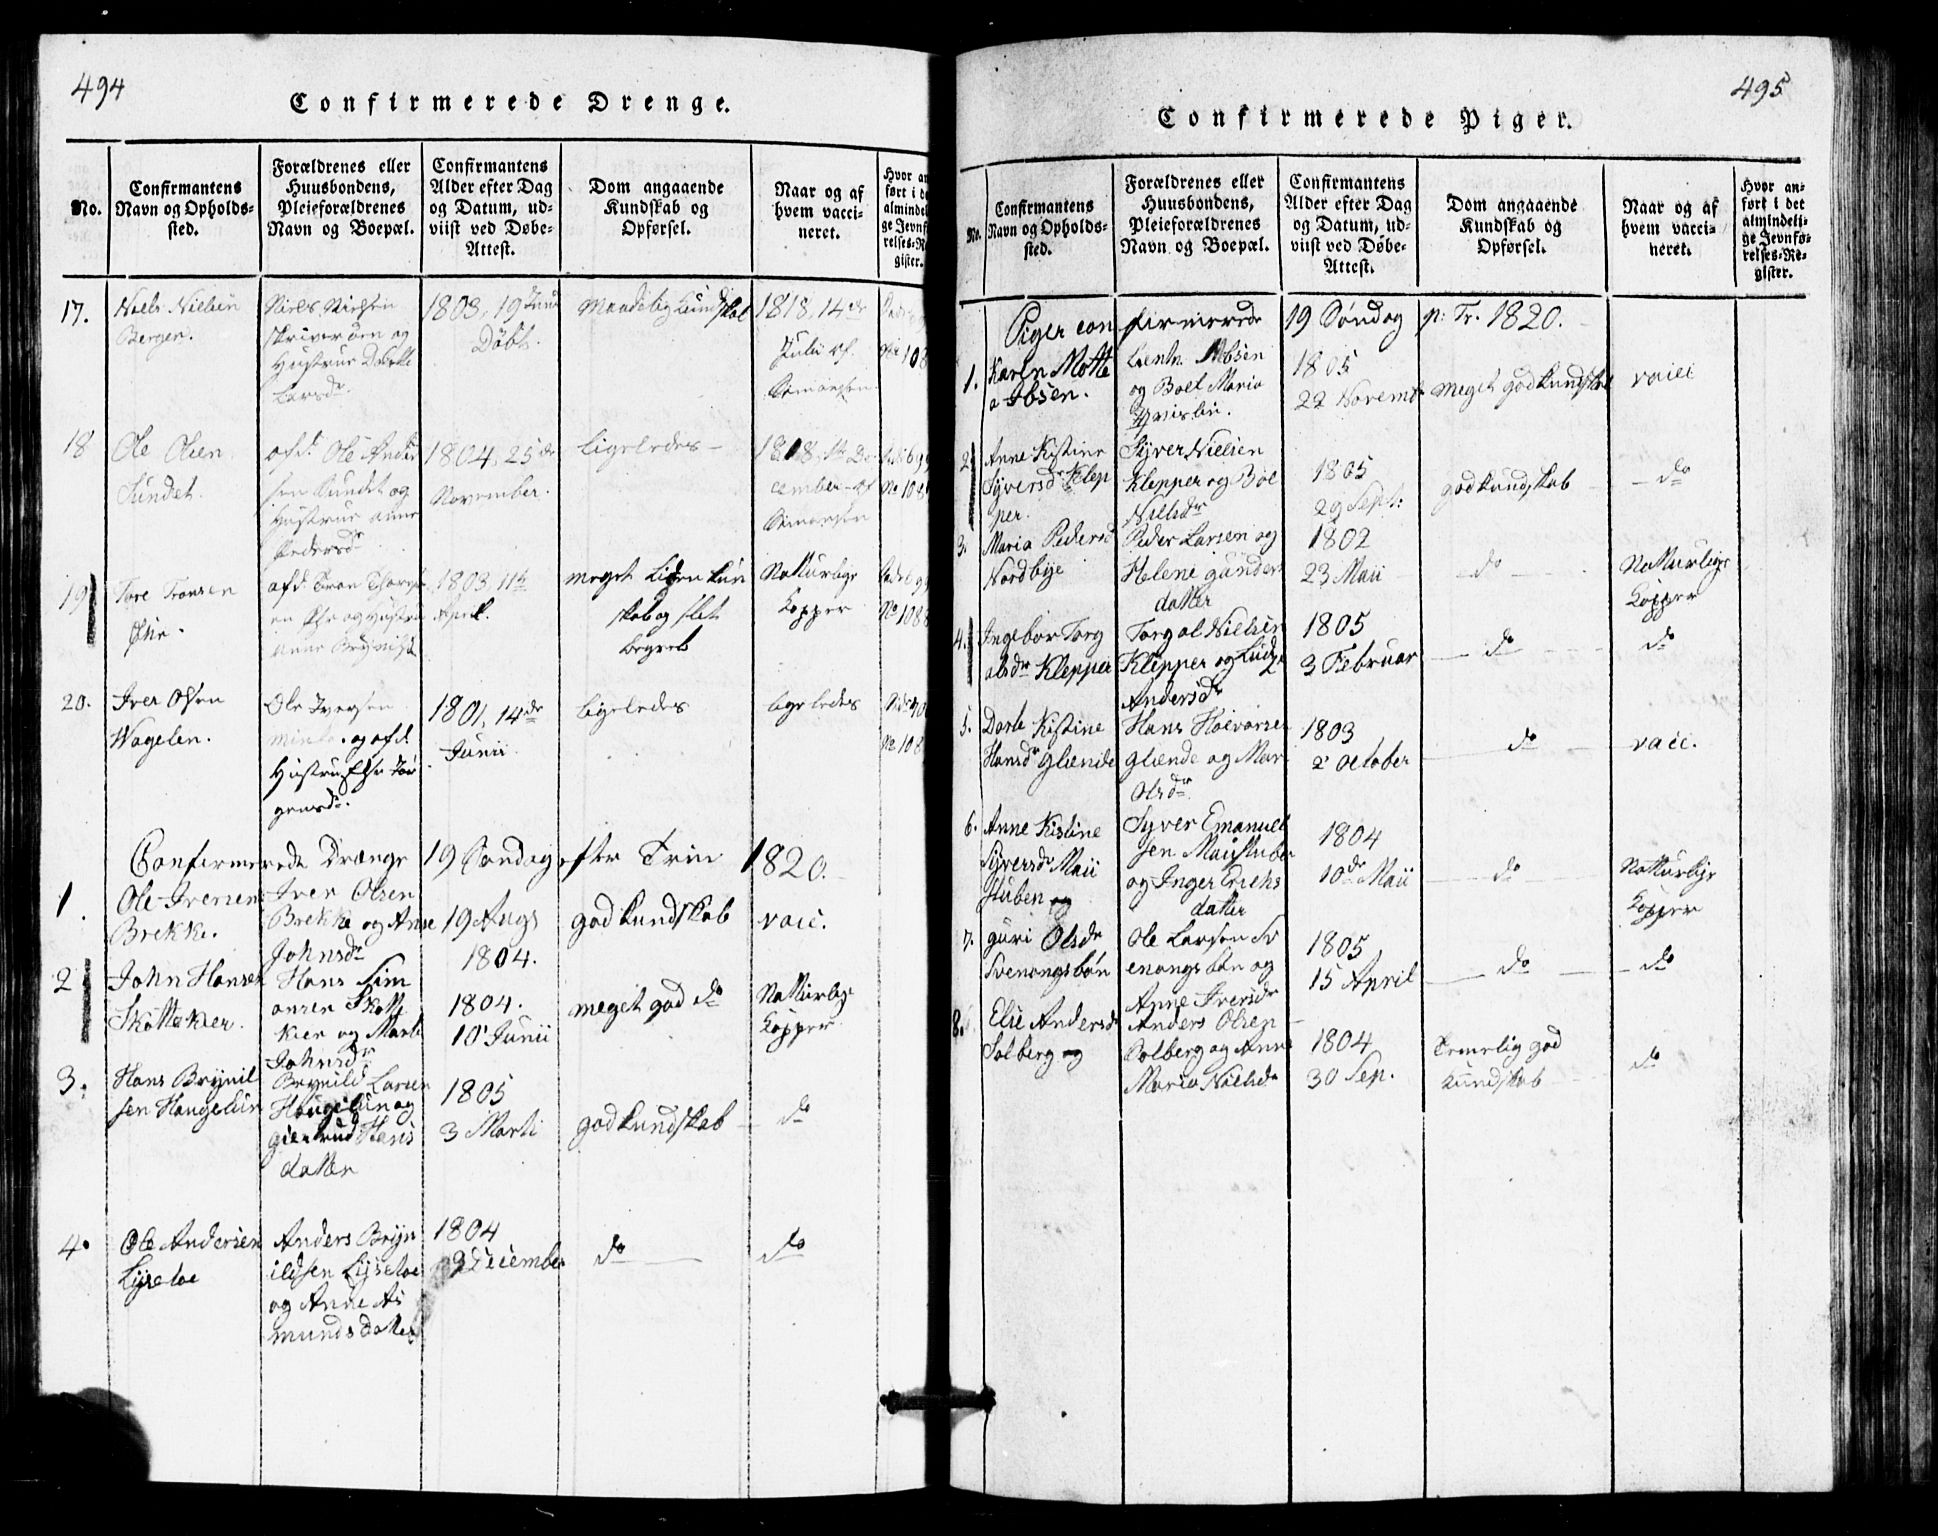 494
Confirmerede Drenge.
No.
Confirmantens
Navn og Opholds-
sted.
Forældrenes eller
Huusbondens,
Pleieforældrenes
Navn og Boepæl.
Confirmantens
Alder efter Dag
og Datum, ud-
viist ved Døbe-
Attest.
Dom angaaende
Kundskab og
Opførsel.
Naar og af
hvem vacci-
neret.
Hvor an
ført i de
almindel
ge Jevnf
relses-R
gister.
17.
Niels Nielsen
Bergen.
Niels Nielsen
skriverøen og
Hustrue Dorthe
Larsdr
1803, 19
Døbt.
Maadelig kundskab
1818, 14de
Julii af
Simonsen
18
Ole Olsen
Sundet.
afd. Ole Ander
sen Sundet og
Hustrue Anne
Pedersdr
1804, 25de
November.
ligeledes
1818, 1te De
cember af
Simonsen
19
Tore Tronsen
afd. Tron
1803 11te
April.
meget liden kun
skab og slet
begreb
Natturlige
Kopper
No 108
20.
Iver Olsen
Wagelen.
Ole Iversen
og afd.
Hustru Else Tor
gensdr.
1801, 14de
Junii
ligeledes
ligeledes
Confirmerede Drænge 19 Søndag efter Trin 1820.
1.
Ole Iversen
Brekke.
Iver Olsen
Brekke og Anne
Johnsdr
19 Augs
1804.
god kundskab
vacc.
2
John Hansen
Skøttekier.
Hans Sim
onsen Skøtt
kier og Marte
Johnsdr
1804.
10 Junii
meget god do
Natturlige
Kopper
3.
Hans Brynil
sen Haugelun
Brynild Larsen
Haugelun og
giertrud Hans
datter
1805
3 Marti
god kundskab
do
4.
Ole Andersen
Lysetoe
Anders Bryn
ildsen Lysetoe
og Anne As
mundsdatter
1804
Decembr
do
do
495
Confirmerede Piger.
No.
Confirmantens
Navn og Opholds-
sted.
Forældrenes eller
Huusbondens,
Pleieforældrenes
Navn og Boepæl.
Confirmantens
Alder efter Dag
og Datum, ud-
viist ved Døbe-
Attest.
Dom angaaende
Kundskab og
Opførsel.
Naar og af
hvem vacci-
neret.
Hvor an-
ført i det
almindeli-
ge Jevnfø-
relses-Re-
gister.
Piger confirmerede 19 Søndag p: Tr. 1820.
1.
Karen Motte
a Ibsen.
Leutn. Ibsen
og Boel Maria
1805
22 Novembr
meget god kundskab
vacc
2
Anne Kistine
Syversdr Klep
per.
Syver Nielsen
Klepper og Boe
Nielsdr
1805
29 Sept:
god kundskab
do
3.
Maria Pedersd
Nordbye
Peder Larsen og
Helene gunder
datter
1802
23 Maii
do
Natturlige
Kopper
4.
Ingebor Torg
alsdr Klepper
Torgal Nielsen
Klepper og
Andersdr
1805
3 Februar
do
do
5.
Dorte Kistine
Hansdr Glende
Hans Hoevorsen
glende og Mar
Olsdr
1803
2 October
do
vacc.
6.
Anne Kistine
Syversdr Maii
stuben og
Syver Emanuel
sen Maistuben
og Inger Erichs
datter
1804
10de Maii
do
Natturlige
Kopper
7.
guri Olsdr
Svenongsbøn
Ole Larsen Sv
enongsbøn og
Anne Iversdr
1805
15 April
do
do
8.
Else Andersdr
Solberg og
Anders Olsen
Solberg og Anne
Maria Nielsdr
1804
30 Sep.
Temelig god
kundskab
do